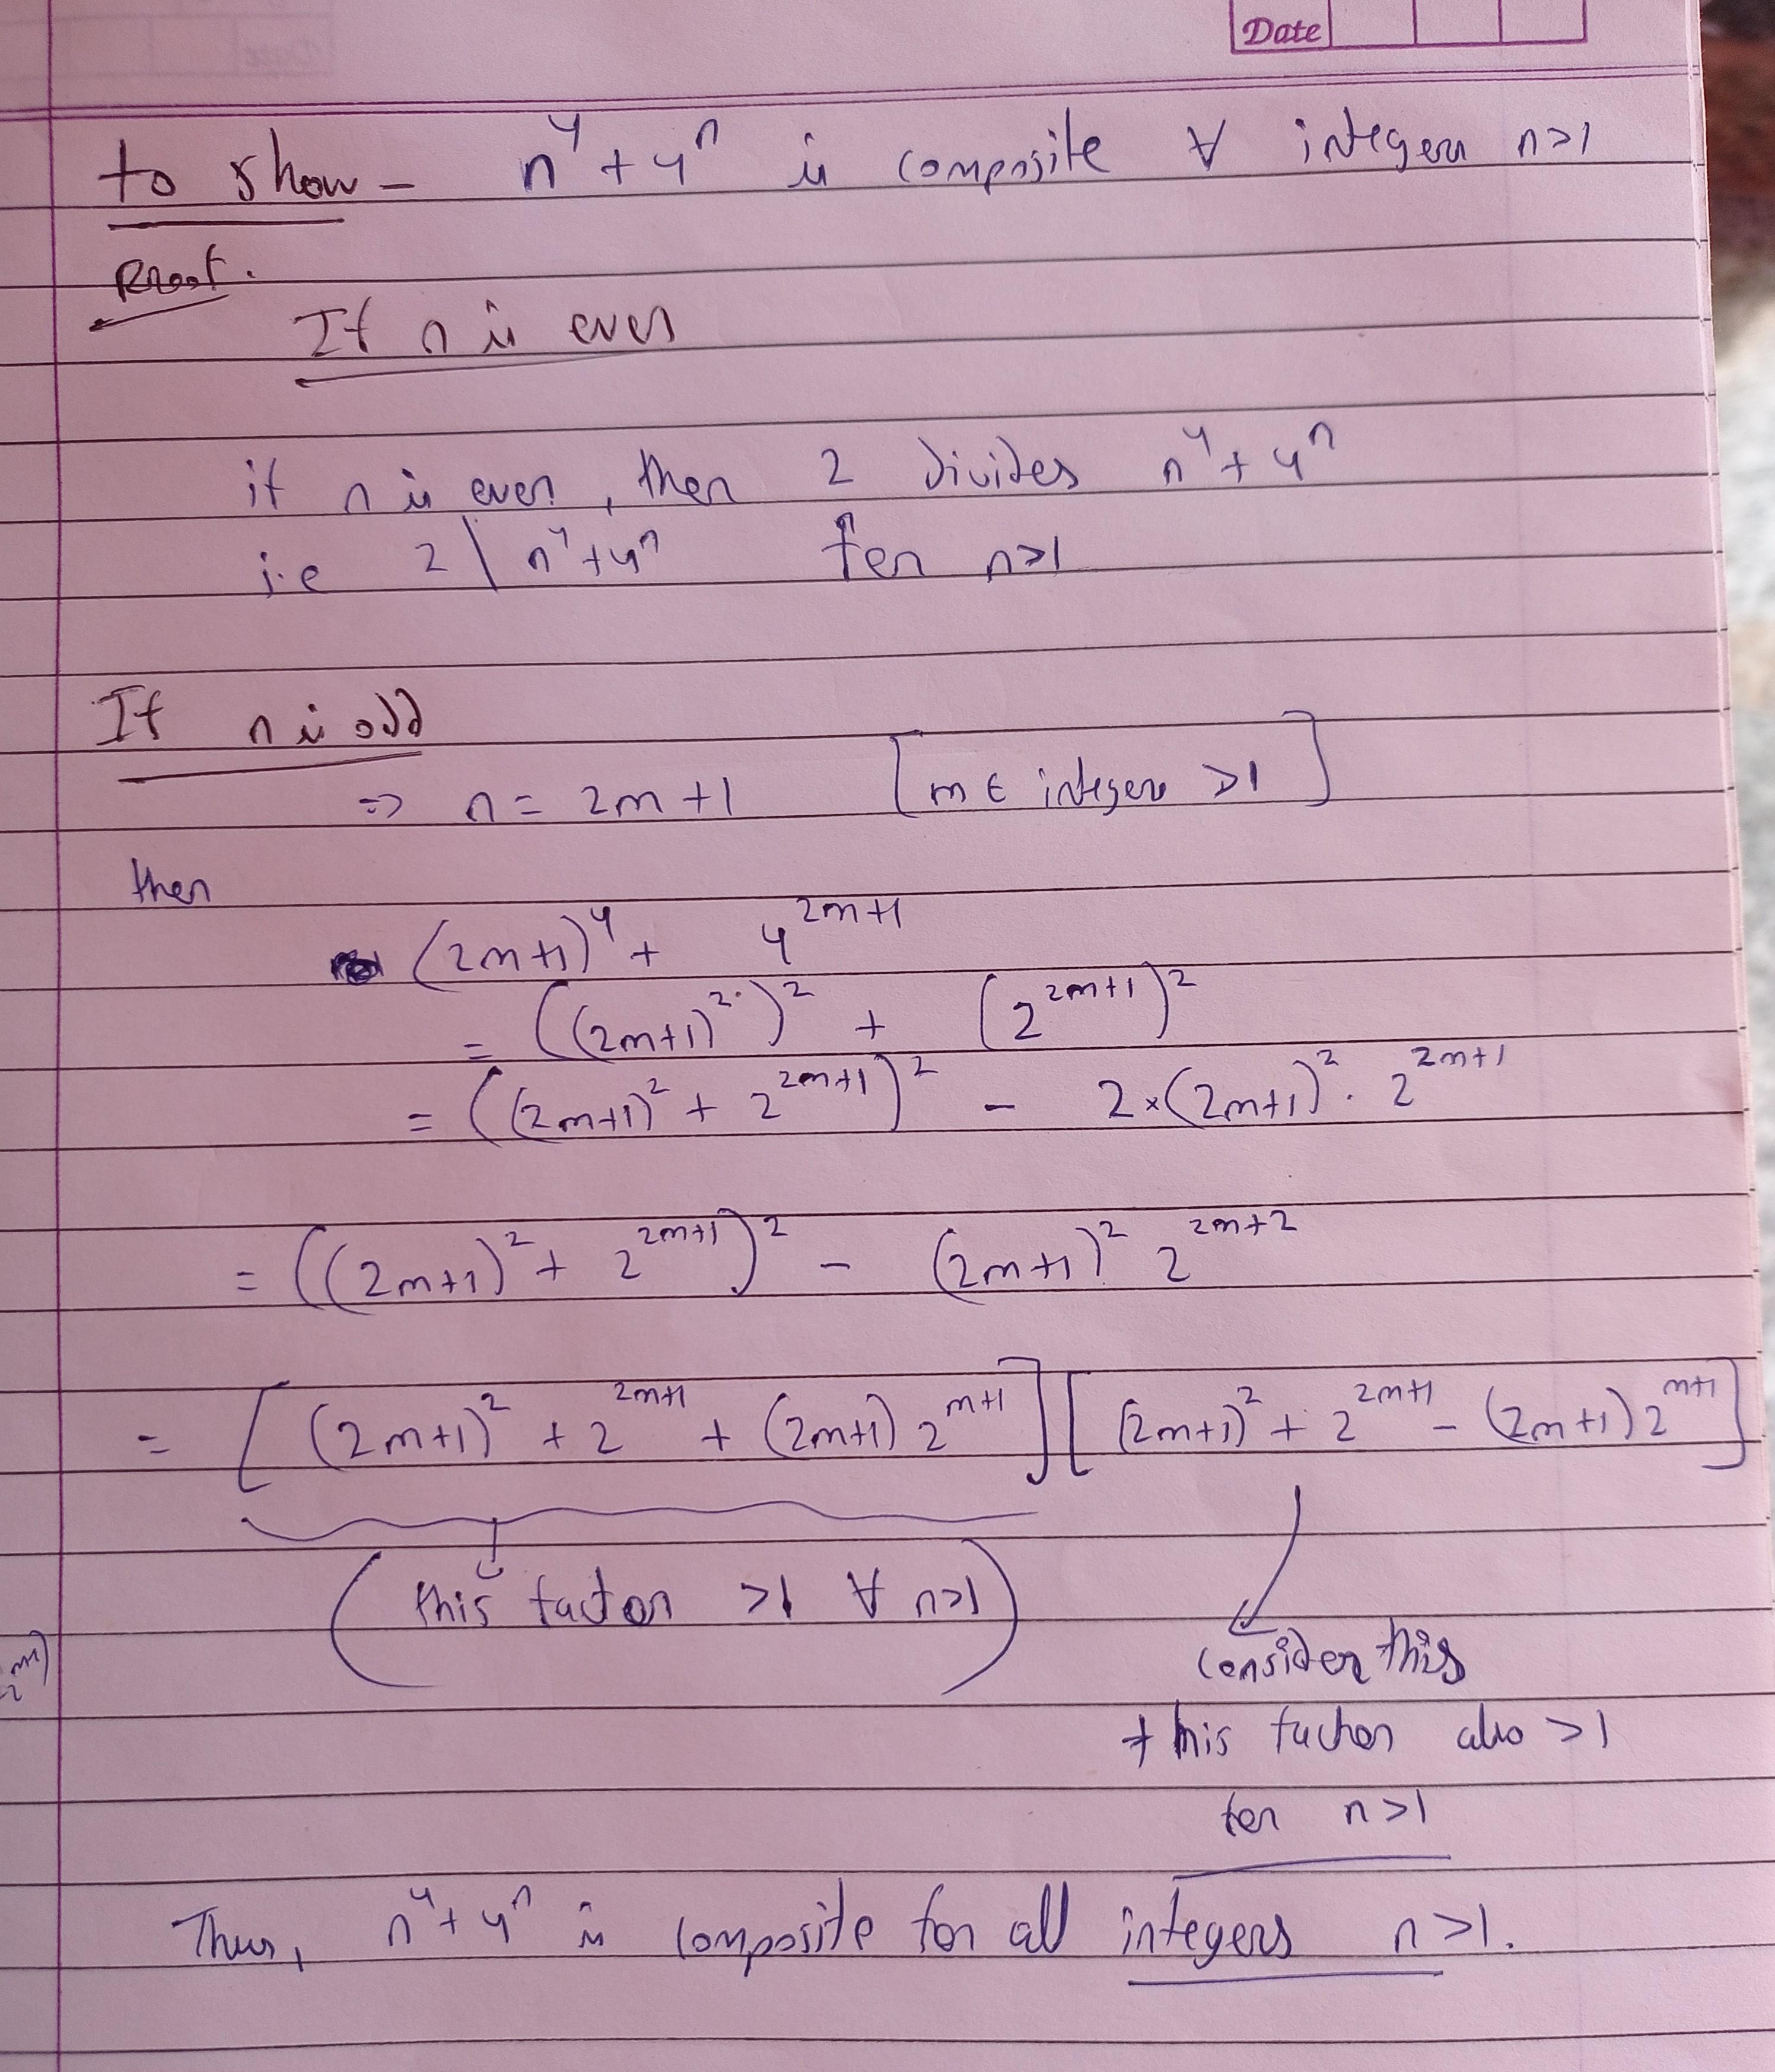 Date
to show - n⁴ + 4ⁿ is composite ∀ integer n>1
Proof.
If n is even
if n is even, then 2 divides n⁴ + 4ⁿ
i.e 2 | n⁴+4ⁿ for n>1
If n is odd
⇒ n = 2m+1 [m ∈ integer ≥1]
then
(2m+1)⁴ + 4^{2m+1}
= ((2m+1)²)² + (2^{2m+1})²
= ((2m+1)² + 2^{2m+1})² - 2×(2m+1)². 2^{2m+1}
= ((2m+1)² + 2^{2m+1})² - (2m+1)² 2^{2m+2}
= [(2m+1)² + 2^{2m+1} + (2m+1) 2^{m+1}] [(2m+1)² + 2^{2m+1} - (2m+1) 2^{m+1}]
(this factor >1 ∀ n>1)
consider this
this factor also >1
for n>1
Thus, n⁴+4ⁿ is composite for all integers n>1.